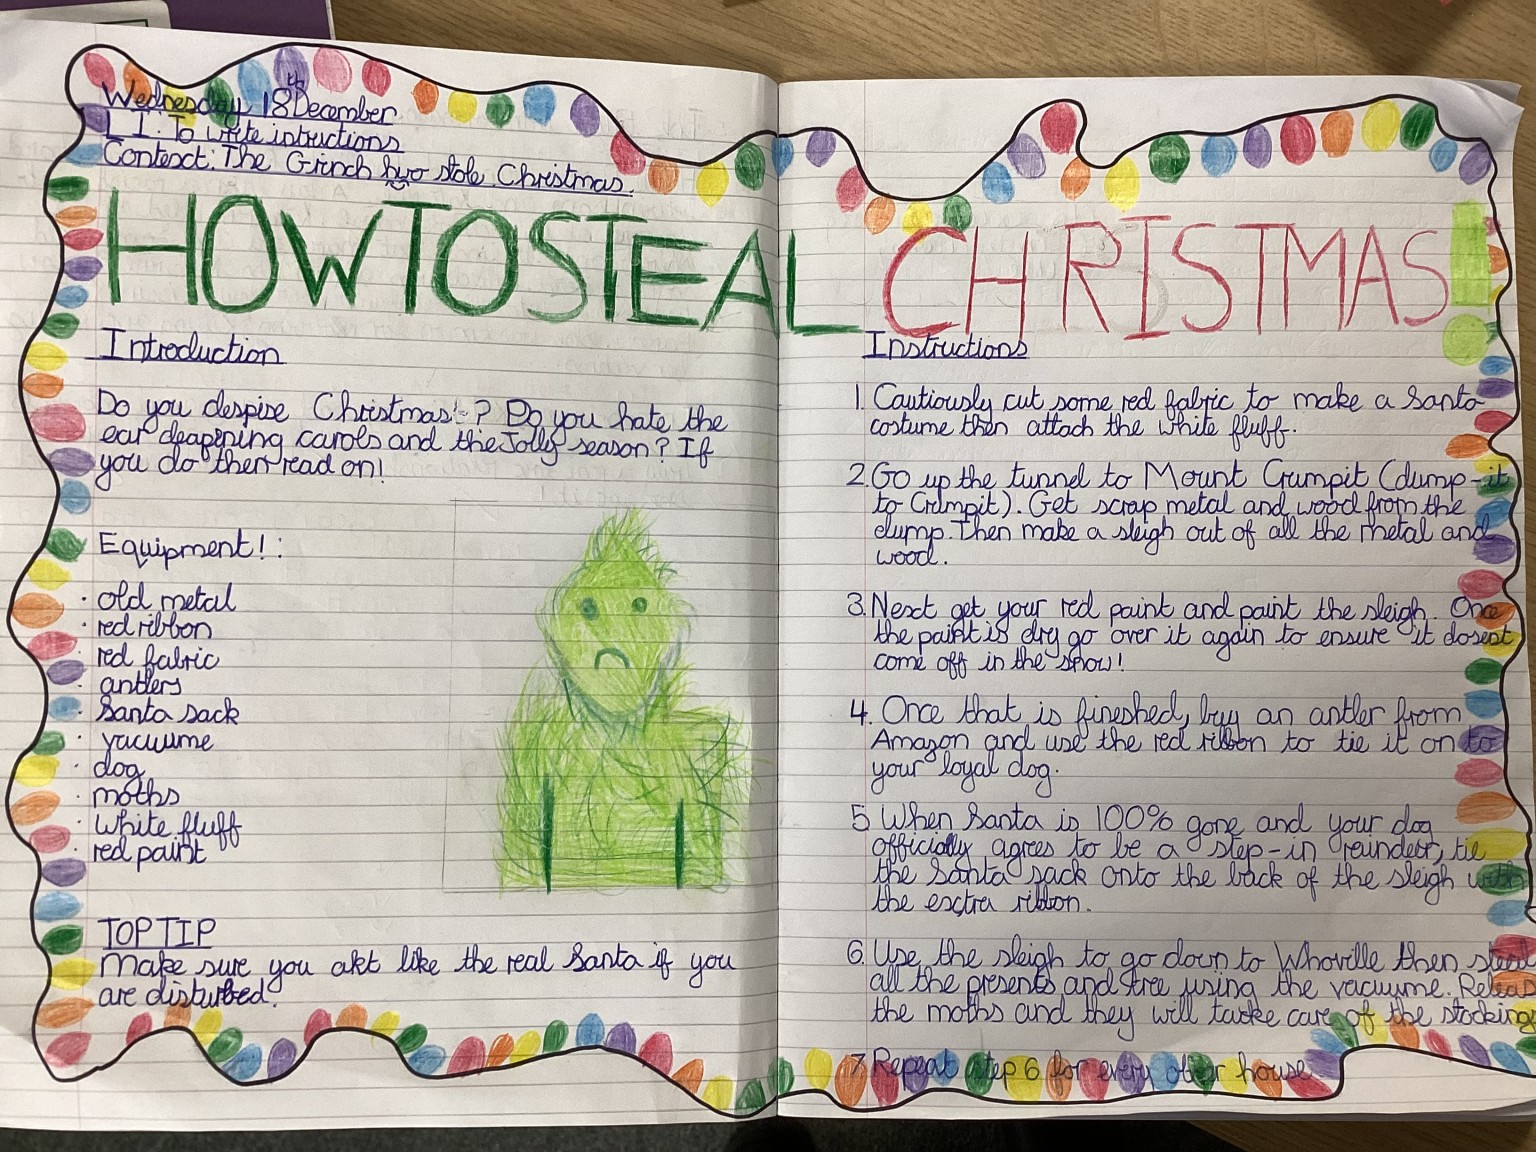 Wednesday 18th December
L.I. To write intructions
Context: The Grinch hwo stole Christmas.
HOW TO STEAL CHRISTMAS!
Introduction
Do you despise Christmas!? Do you hate the
ear deapening carols and the Jolly season? If
you do then read on!
Equipment!:
· old metal
· red ribbon
· red fabric
· antlers
· Santa sack
· vacuume
· dog
· moths
· white fluff
· red paint
TOP TIP
Make sure you akt like the real Santa if you
are disturbed.
Instructions
1. Cautiously cut some red fabric to make a Santa
costume then attach the white fluff.
2. Go up the tunnel to Mount Crumpit (dump-it
to Crumpit). Get scrap metal and wood from the
dump. Then make a sleigh out of all the metal and
wood.
3. Next get your red paint and paint the sleigh. Once
the paint is dry go over it again to ensure it dosent
come off in the snow!
4. Once that is fineshed, buy an antler from
Amazon and use the red ribbon to tie it on to
your loyal dog.
5 When Santa is 100% gone and your dog
officially agrees to be a step-in reindeer, tie
the Santa sack onto the back of the sleigh with
the extra ribbon.
6. Use the sleigh to go down to Whoville then steal
all the presents and tree using the vacuume. Releas
the moths and they will tacke care of the stockings
7. Repeat step 6 for every other house